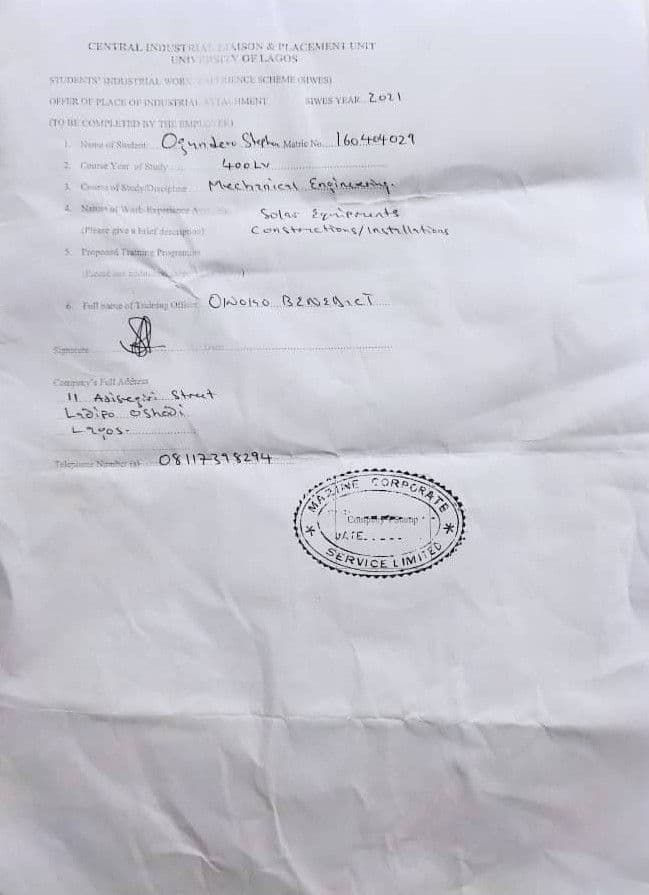 CENTRAL INDUSTRIAL LIAISON & PLACEMENT UNIT
UNIVERSITY OF LAGOS
STUDENTS' INDUSTRIAL WORK EXPERIENCE SCHEME (SIWES)
OFFER OF PLACE OF INDUSTRIAL ATTACHMENT SIWES YEAR 2021
(TO BE COMPLETED BY THE EMPLOYER)
1. Name of Student Ogundero Stephen Matric No..... 160404029
2. Course Year of Study..... 400Lv
3. Course of Study/Discipline Mechanical Engineering.
4. Nature of Work Experience Solar Equipments
(Please give a brief description) Constructions/Installations
5. Proposed Training Programme
6. Full name of Training Officer OWOIGO BENEDICT
Signature
Company's Full Address
11 Street
Ladipo Oshodi
Lagos.
Telephone Number (s) 08117398294
MAZINE CORPORATE
Company Stamp
DATE.....
SERVICE LIMITED